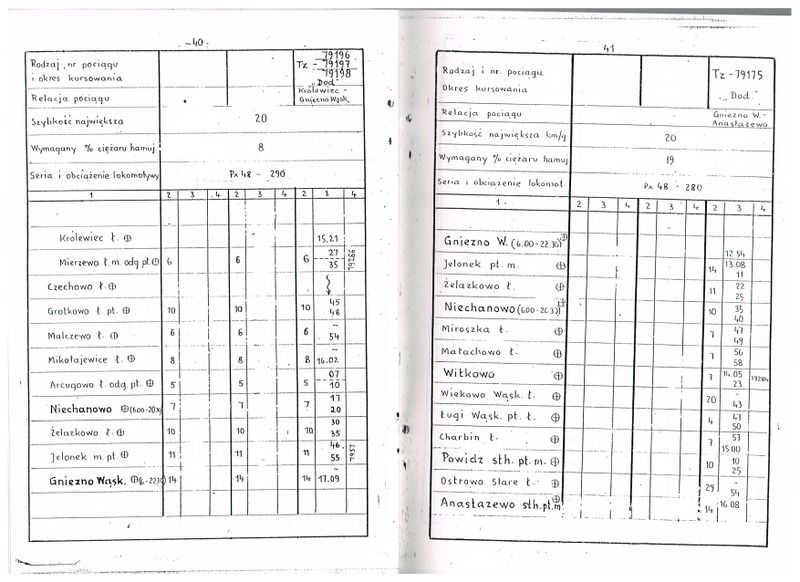 - 40 -
Rodzaj, nr pociągu
i okres kursowania
79196
Tz - 79197
79198
"Dod."
Relacja pociągu
Królewiec -
Gniezno Wąsk.
Szybkość największa 20
Wymagany % ciężaru hamuj. 8
Seria i obciążenie lokomotywy Px 48 - 290
1 2 3 4 2 3 4 2 3 4
Królewiec ł. ⊕ 15.21
Mierzewo ł. m. odg. pt. ⊕ 6 6 6 27 35 79286
Czechowo ł. ⊕
Grotkowo ł. pt. ⊕ 10 10 10 45 48
Malczewo ł. ⊕ 6 6 6 - 54
Mikołajewice ł. ⊕ 8 8 8 16.02
Arcugowo ł. odg. pt. ⊕ 5 5 5 07 10
Niechanowo ⊕ 7 7 7 17 20
Żelazkowo ł. ⊕ 10 10 10 30 35
Jelonek m. pt. ⊕ 11 11 11 46 55
Gniezno Wąsk. ⊕ 14 14 14 - 17.09
41
Rodzaj i nr. pociągu
Okres kursowania
Tz - 79175
"Dod."
Relacja pociągu
Gniezno W. -
Anastazewo
Szybkość największa km/g 20
Wymagany % ciężaru hamuj 19
Seria i obciążenie lokomot. Px 48 - 280
1. 2 3 4 2 3 4 2 3 4
Gniezno W. (6.00-22.30) ⊕ 12 54
Jelonek pt. m. ⊕ 14 13.08 11
Żelazkowo ł. ⊕ 11 22 25
Niechanowo ⊕ 10 35 40
Miroszka ł. ⊕ 7 47 49
Małachowo ł. ⊕ 7 56 58
Witkowo ⊕ 7 14.05 23
Wiekowo Wąsk. ł. ⊕ 20 - 43
Ługi Wąsk. pt. ł. ⊕ 4 47 50
Charbin ł. ⊕ 7 57 15.00
Powidz sth. pt. m. ⊕ 10 10 25
Ostrowo Stare ł. ⊕ 29 - 54
Anastazewo sth. pt. m ⊕ 14 16 08